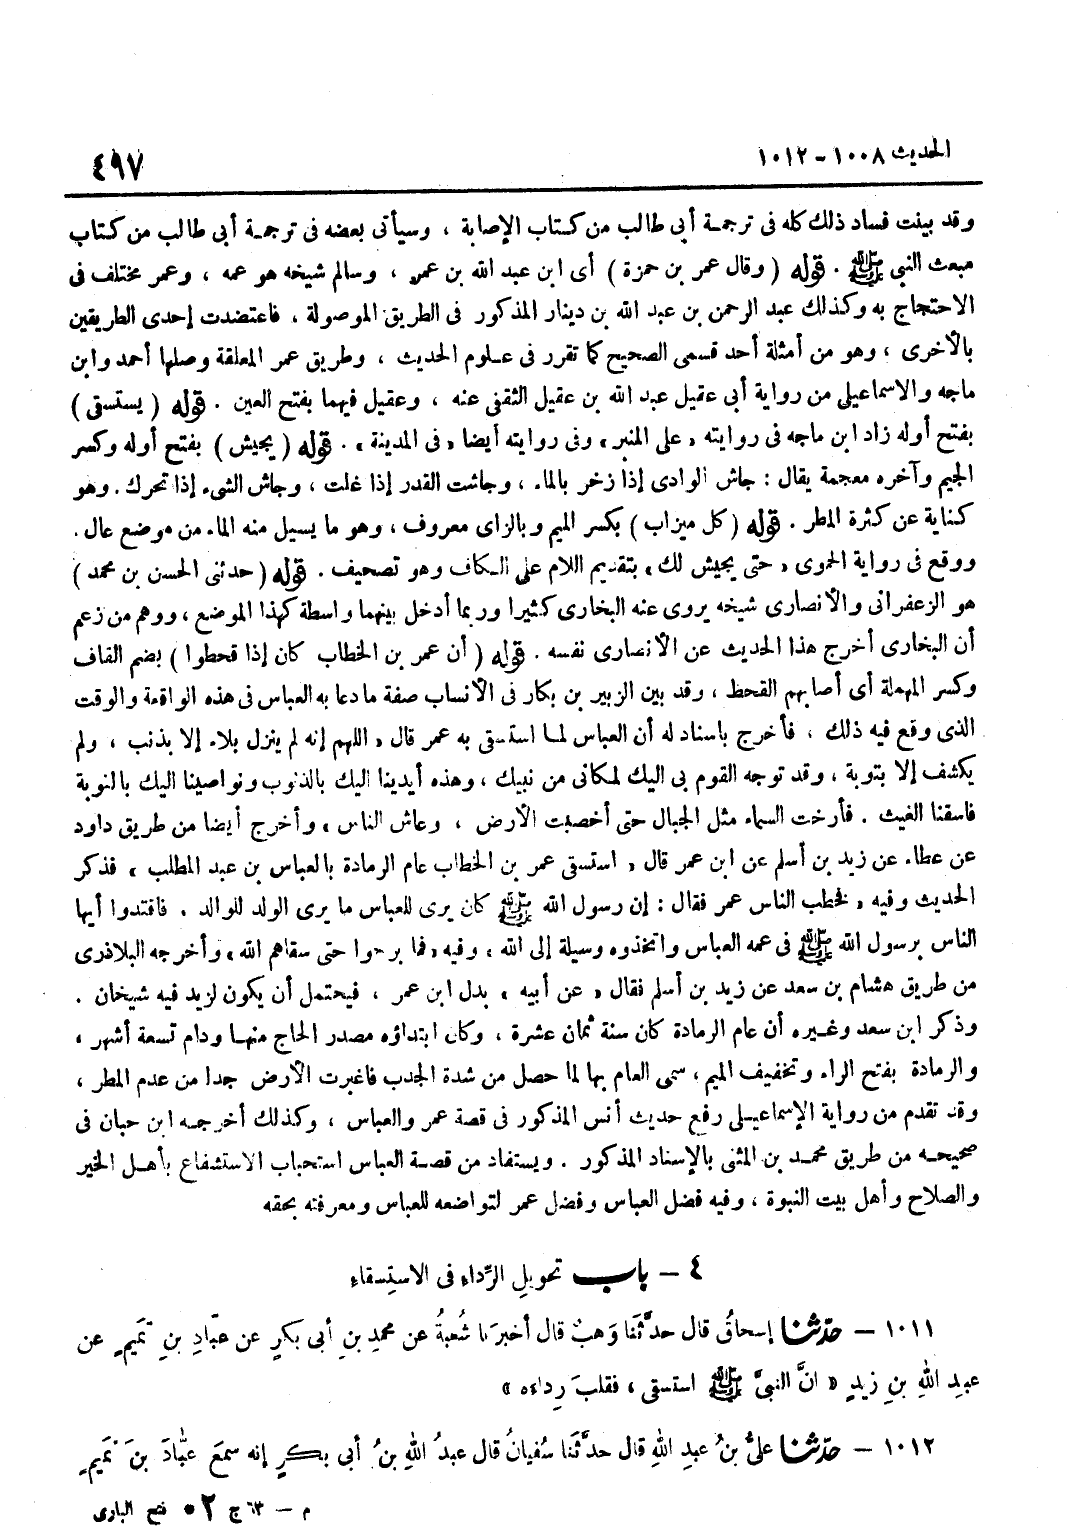 الحديث ١٠٠٨ - ١٠١٢
٤٩٧
وقد بينت فساد ذلك كله فى ترجمة أبى طالب من كتاب الإصابة ، وسيأتى بعضه فى ترجمة أبى طالب من كتاب
مبعث النبى ﷺ . قوله ( وقال عمر بن حمزة ) أى ابن عبد الله بن عمر ، وسالم شيخه هو عمه ، وعمر مختلف فى
الاحتجاج به وكذلك عبد الرحمن بن عبد الله بن دينار المذكور فى الطريق الموصولة ، فاعتضدت إحدى الطريقين
بالأخرى ، وهو من أمثلة أحد قسمى الصحيح كما تقرر فى علوم الحديث ، وطريق عمر المعلقة وصلها أحمد وابن
ماجه والاسماعيلى من رواية أبى عقيل عبد الله بن عقيل الثقفى عنه ، وعقيل فيهما بفتح العين . قوله ( يستسقى )
بفتح أوله زاد ابن ماجه فى روايته « على المنبر » وفى روايته أيضا « فى المدينة » . قوله ( يجيش ) بفتح أوله وكسر
الجيم وآخره معجمة يقال : جاش الوادى إذا زخر بالماء ، وجاشت القدر إذا غلت ، وجاش الشىء إذا تحرك . وهو
كناية عن كثرة المطر . قوله ( كل ميزاب ) بكسر الميم وبالزاى معروف ، وهو ما يسيل منه الماء من موضع عال .
ووقع فى رواية الحموى « حتى يجيش لك » بتقديم اللام على الكاف وهو تصحيف . قوله ( حدثنى الحسن بن محمد )
هو الزعفرانى والأنصارى شيخه يروى عنه البخارى كثيرا وربما أدخل بينهما واسطة كهذا الموضع ، ووهم من زعم
أن البخارى أخرج هذا الحديث عن الأنصارى نفسه . قوله ( أن عمر بن الخطاب كان إذا قحطوا ) بضم القاف
وكسر المهملة أى أصابهم القحط ، وقد بين الزبير بن بكار فى الأنساب صفة ما دعا به العباس فى هذه الواقعة والوقت
الذى وقع فيه ذلك ، فأخرج باسناد له أن العباس لما استسقى به عمر قال « اللهم إنه لم ينزل بلاء إلا بذنب ، ولم
يكشف إلا بتوبة ، وقد توجه القوم بى اليك لمكانى من نبيك ، وهذه أيدينا اليك بالذنوب ونواصينا اليك بالتوبة
فاسقنا الغيث . فأرخت السماء مثل الجبال حتى أخصبت الأرض ، وعاش الناس » وأخرج أيضا من طريق داود
عن عطاء عن زيد بن أسلم عن ابن عمر قال « استسقى عمر بن الخطاب عام الرمادة بالعباس بن عبد المطلب » فذكر
الحديث وفيه « فخطب الناس عمر فقال : إن رسول الله ﷺ كان يرى للعباس ما يرى الولد للوالد . فاقتدوا أيها
الناس برسول الله ﷺ فى عمه العباس واتخذوه وسيلة إلى الله ، وفيه « فما برحوا حتى سقاهم الله » وأخرجه البلاذرى
من طريق هشام بن سعد عن زيد بن أسلم فقال « عن أبيه » بدل ابن عمر ، فيحتمل أن يكون لزيد فيه شيخان .
وذكر ابن سعد وغيره أن عام الرمادة كان سنة ثمان عشرة ، وكان ابتداؤه مصدر الحاج منها ودام تسعة أشهر ،
والرمادة بفتح الراء وتخفيف الميم ، سمى العام بها لما حصل من شدة الجدب فاغبرت الأرض جدا من عدم المطر ،
وقد تقدم من رواية الإسماعيلى رفع حديث أنس المذكور فى قصة عمر والعباس ، وكذلك أخرجه ابن حبان فى
صحيحه من طريق محمد بن المثنى بالإسناد المذكور . ويستفاد من قصة العباس استحباب الاستشفاع بأهل الخير
والصلاح وأهل بيت النبوة ، وفيه فضل العباس وفضل عمر لتواضعه للعباس ومعرفته بحقه
٤ - باب تحويلِ الرِّداءِ فى الاستِسقاءِ
١٠١١ - حدّثنا إسحاقُ قال حدَّثَنا وَهبٌ قال أخبرَنا شُعبةُ عن محمدِ بنِ أبى بكرٍ عن عبّادِ بنِ تميمٍ عن
عبدِ اللهِ بنِ زيدٍ « انَّ النبىَّ ﷺ استسقى ، فقلبَ رِداءه »
١٠١٢ - حدّثنا علىُّ بنُ عبدِ اللهِ قال حدَّثَنا سُفيانُ قال عبدُ اللهِ بنُ أبى بكرٍ إنه سمعَ عبّادَ بنَ تميمٍ
م - ٦٣ ج ٢ • فتح البارى